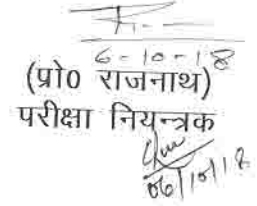 6-10-18
(प्रो0 राजनाथ)
परीक्षा नियन्त्रक
06/10/18